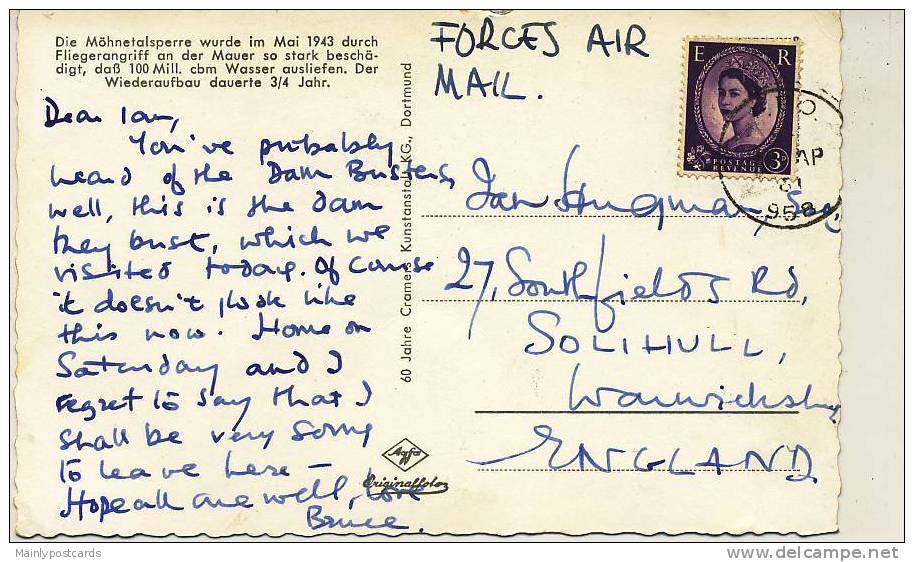 Die Möhnetalsperre wurde im Mai 1943 durch
Fliegerangriff an der Mauer so stark beschä-
digt, daß 100 Mill. cbm Wasser ausliefen. Der
Wiederaufbau dauerte 3/4 Jahr.
Dear Ian,
You've probably
heard of the Dam Busters,
well, this is the dam
they bust, which we
visited today. Of Course
it doesn't look like
this now. Home on
Saturday and I
regret to say that I
shall be very sorry
to leave here –
Hope all are well, love
Bruce.
60 Jahre Cramers Kunstanstalt KG., Dortmund
Agfa
Originalfoto
FORCES AIR
MAIL.
E R
POSTAGE
REVENUE
3D
AP
958
Ian Hugman, Esq,
27, Southfields Rd,
SOLIHULL,
Warwickshire
ENGLAND
Mainlypostcards
www.delcampe.net